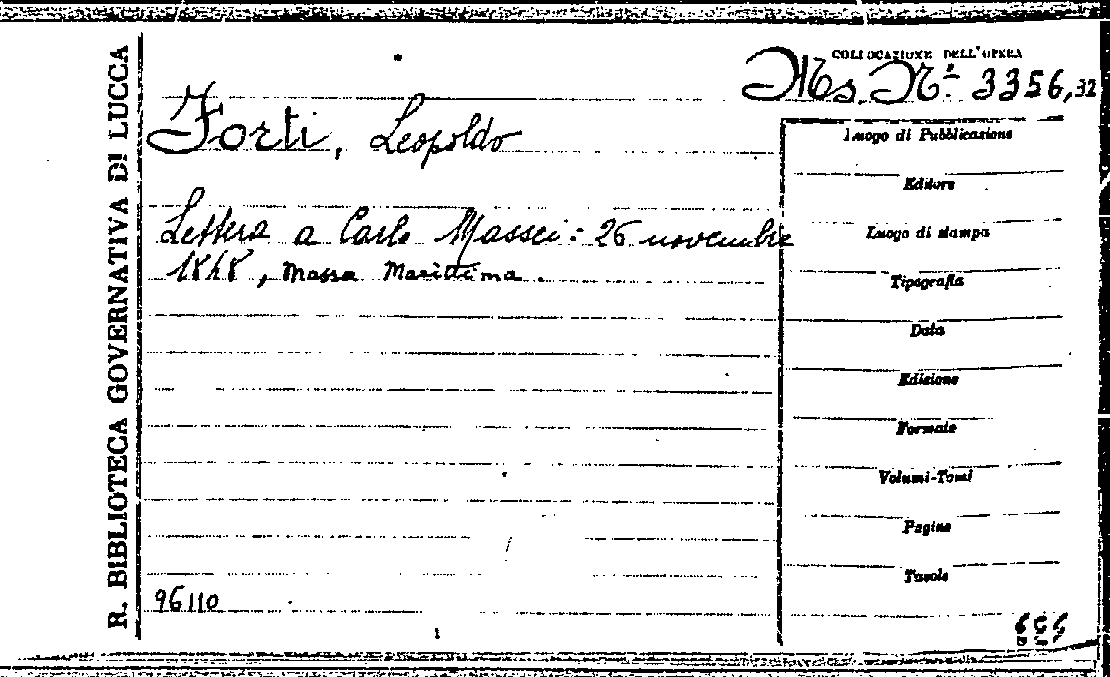 R. BIBLIOTECA GOVERNATIVA DI LUCCA
COLLOCAZIONE DELL'OPERA
Ms. N.º 3356,32
Forti, Leopoldo
Lettera a Carlo Massei: 26 novembre
1848, Massa Marittima.
Luogo di Pubblicazione
Editore
Luogo di stampa
Tipografia
Data
Edizione
Formato
Volumi-Tomi
Pagine
Tavole
96110